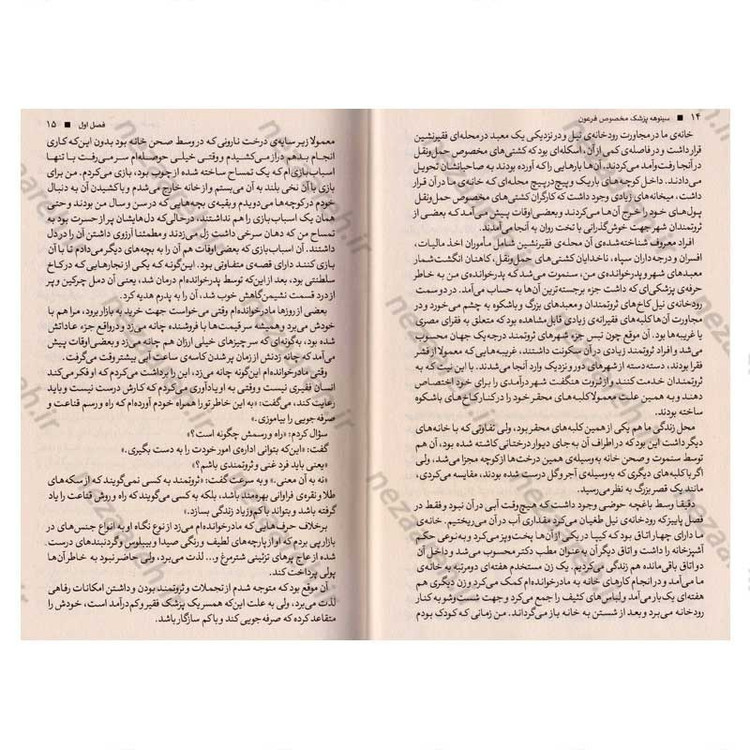 ۱۴ ■ سینوهه پزشک مخصوص فرعون
خانه‌ی ما در مجاورت رودخانه‌ی نیل و در نزدیکی یک معبد در محله‌ای فقیرنشین
قرار داشت و در فاصله‌ی کمی از آن، اسکله‌ای بود که کشتی‌های مخصوص حمل‌ونقل
در آنجا رفت‌وآمد می‌کردند. آن‌ها بارهایی را که آورده بودند به صاحبانشان تحویل
می‌دادند. داخل کوچه‌های باریک و پیچ‌درپیچ محله‌ای که خانه‌ی ما در آن قرار
داشت، میخانه‌های زیادی وجود داشت که کارگران کشتی‌های مخصوص حمل‌ونقل
پول‌های خود را خرج آن‌ها می‌کردند و بعضی اوقات پیش می‌آمد که بعضی از
ثروتمندان شهر جهت خوش‌گذرانی با تخت روان به آنجا می‌آمدند.
افراد معروف شناخته‌شده‌ی آن محله‌ی فقیرنشین شامل مأموران اخذ مالیات،
افسران و درجه‌داران سپاه، ناخدایان کشتی‌های حمل‌ونقل، کاهنان انگشت‌شمار
معبدهای شهر و پدرخوانده‌ی من، سنموت می‌شد که پدرخوانده‌ی من به خاطر
حرفه‌ی پزشکی‌ای که داشت جزء برجسته‌ترین آن‌ها به حساب می‌آمد. در دو سمت
رودخانه‌ی نیل کاخ‌های ثروتمندان و معبدهای بزرگ و باشکوه به چشم می‌خورد و در
مجاورت آن‌ها کلبه‌های فقیرانه‌ی زیادی قابل مشاهده بود که متعلق به فقرای مصری
یا غریبه‌ها بود. آن موقع چون تبس جزء شهرهای ثروتمند درجه‌یک جهان محسوب
می‌شد و افراد ثروتمند زیادی در آن سکونت داشتند، غریبه‌هایی که معمولا از قشر
فقرا بودند، دسته‌دسته از شهرهای دور و نزدیک وارد آنجا می‌شدند. با این نیت که به
ثروتمندان خدمت کنند و از ثروت هنگفت شهر درآمدی را برای خود اختصاص
دهند و به همین علت معمولا کلبه‌های محقر خود را در کنار کاخ‌های باشکوه
ساخته بودند.
محل زندگی ما هم یکی از همین کلبه‌های محقر بود، ولی تفاوتی که با خانه‌های
دیگر داشت این بود که در اطراف آن به‌جای دیوار درختانی کاشته شده بود، آن هم
توسط سنموت و صحن خانه به‌وسیله‌ی همین درخت‌ها از کوچه مجزا می‌شد، ولی
اگر با کلبه‌های دیگر که به‌وسیله‌ی آجر و گل درست شده بودند، مقایسه می‌کردی،
مانند یک قصر بزرگ به نظر می‌رسید.
دقیقا وسط باغچه حوضی وجود داشت که هیچ‌وقت آبی در آن نبود و فقط در
فصل پاییز که رودخانه‌ی نیل طغیان می‌کرد مقداری آب در آن می‌ریختیم. خانه‌ی
ما دارای چهار اتاق بود که کیپا در یکی از آن‌ها پخت‌وپز می‌کرد و به‌نوعی حکم
آشپزخانه را داشت و اتاق دیگر آن به‌عنوان مطب دکتر محسوب می‌شد و داخل آن
دو اتاق باقی‌مانده هم زندگی می‌کردیم. یک زن مستخدم هفته‌ای دومرتبه به خانه‌ی
ما می‌آمد و در انجام کارهای خانه به مادرخوانده‌ام کمک می‌کرد و زن دیگری هم
هفته‌ای یک بار می‌آمد و لباس‌های کثیف را جمع می‌کرد و جهت شست‌وشو به کنار
رودخانه می‌برد و بعد از شستن به خانه باز می‌گرداند. من زمانی که کودک بودم
فصل اول ■ ۱۵
معمولا زیر سایه‌ی درخت نارونی که در وسط صحن خانه بود بدون این‌که کاری
انجام بدهم دراز می‌کشیدم و وقتی خیلی حوصله‌ام سر می‌رفت با تنها
اسباب‌بازی‌ام که یک تمساح ساخته شده از چوب بود، بازی می‌کردم. من برای
بازی با آن نخی بلند به آن می‌بستم و از خانه خارج می‌شدم و با کشیدن آن به دنبال
خودم در کوچه‌ها می‌دویدم و بقیه‌ی بچه‌هایی که در سن و سال من بودند و حتی
همان یک اسباب‌بازی را هم نداشتند، درحالی‌که دل‌هایشان پر از حسرت بود به
تمساح من که دهان سرخی داشت زل می‌زدند و مطمئنا آرزوی داشتن آن را در دل
داشتند. آن اسباب‌بازی که بعضی اوقات هم آن را به بچه‌های دیگر می‌دادم تا با آن
بازی کنند دارای قصه‌ی متفاوتی بود. این‌گونه که یکی از نجارهایی که در کاخ
سلطنتی بود، بعد از این‌که توسط پدرخوانده‌ام درمان شد، یعنی آن دمل چرکین و پر
از درد قسمت نشیمن‌گاهش خوب شد، آن را به پدرم هدیه کرد.
بعضی از روزها مادرخوانده‌ام وقتی می‌خواست جهت خرید به بازار برود، مرا هم با
خودش می‌برد و همیشه سر قیمت‌ها با فروشنده چانه می‌زد و درواقع جزء عاداتش
شده بود، به‌گونه‌ای که سر چیزهای خیلی ارزان هم چانه می‌زد و بعضی اوقات پیش
می‌آمد که چانه زدنش از زمان پر شدن کاسه‌ی ساعت آبی بیشتر وقت می‌گرفت.
وقتی مادرخوانده‌ام این‌گونه چانه می‌زد، این تصور را می‌کردم که او فکر می‌کند
انسان فقیری نیست و وقتی به او یادآوری می‌کردم که کارش درست نیست و باید
رعایت کند، می‌گفت: «به این خاطر تو را همراه خودم آورده‌ام که راه و رسم قناعت و
صرفه جویی را بیاموزی.»
سؤال کردم: «راه و رسمش چگونه است؟»
گفت: «این‌که بتوانی اداره‌ی امور خودت را به دست بگیری.»
«یعنی باید فرد غنی و ثروتمندی باشم؟»
«نه به آن معنی.» و به سرعت گفت: «ثروتمند به کسی نمی‌گویند که از سکه‌های
طلا و نقره‌ی فراوانی بهره‌مند باشد، بلکه به کسی می‌گویند که راه و روش قناعت را یاد
گرفته باشد و بتواند با کم و زیاد زندگی بسازد.»
برخلاف حرف‌هایی که مادرخوانده‌ام می‌زد از نوع نگاه او به انواع جنس‌های در
بازار پی بردم که او از پارچه‌های لطیف و رنگی صیدا و بیبلوس و گردنبندهای درست
شده از عاج پرهای تزئینی شترمرغ و... لذت می‌برد، ولی حاضر نبود به خاطر آن‌ها
پولی پرداخت کند.
آن موقع بود که متوجه شدم از تجملات و ثروتمند بودن و داشتن امکانات رفاهی
لذت می‌برد، ولی به علت این‌که همسر یک پزشک فقیر و کم‌درآمد است، خودش را
متقاعد کرده که صرفه‌جویی کند و با کم سازگار باشد.
nezaareh.ir